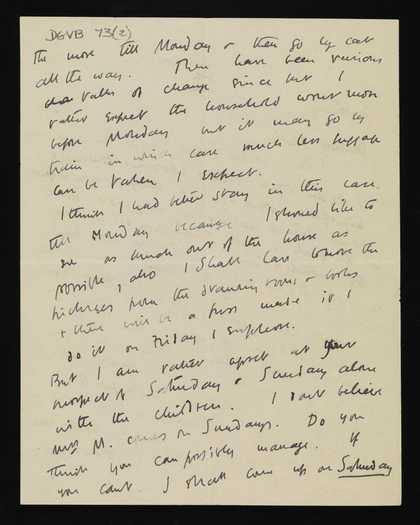 DGVB 73(2)
the move till Monday & then go by car
all the way. There have been various
talks of change since but I
rather expect the household wont move
before Monday but it may go by
train in which case much less luggage
can be taken I expect.
I think I had better stay in this case
till Monday because I should like to
see as much out of the house as
possible, also I shall have to move the
pictures from the drawing room & books
& there will be a fuss made if I
do it on Friday I suppose.
But I am rather upset at your
prospect of Saturday & Sunday alone
with the children. I dont believe
Mrs M. comes on Sundays. Do you
think you can possibly manage. If
you cant I shall come up on Saturday